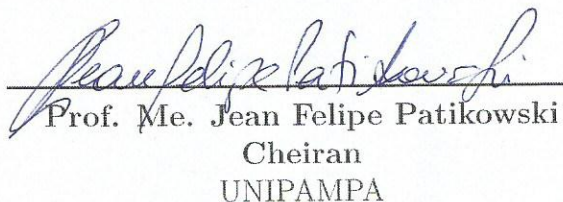 Jean Felipe Patikowski
Prof. Me. Jean Felipe Patikowski
Cheiran
UNIPAMPA